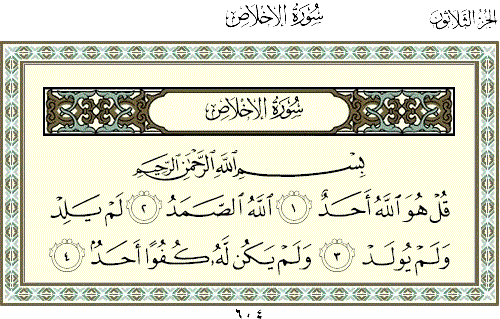 الجزء الثلاثون
سورة الإخلاص
سورة الإخلاص
بِسْمِ اللَّهِ الرَّحْمَٰنِ الرَّحِيمِ
قُلْ هُوَ اللَّهُ أَحَدٌ ١ اللَّهُ الصَّمَدُ ٢ لَمْ يَلِدْ
وَلَمْ يُولَدْ ٣ وَلَمْ يَكُن لَّهُ كُفُوًا أَحَدٌ ٤
٦٠٤